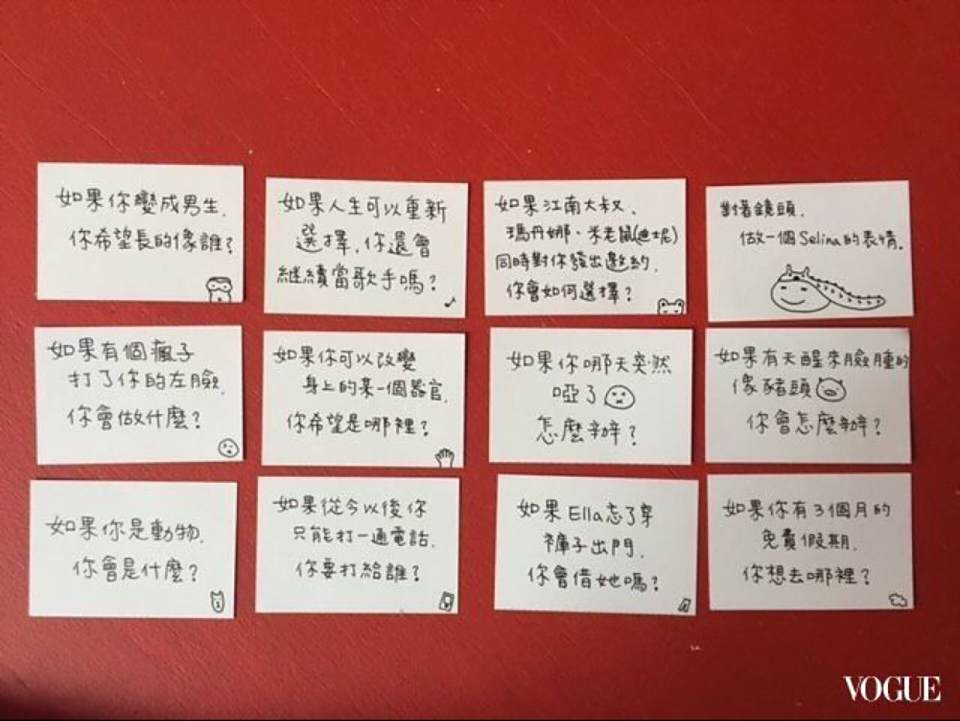 如果你變成男生,
你希望長的像誰?
如果人生可以重新
選擇,你還會
繼續當歌手嗎?
如果江南大叔、
瑪丹娜、米老鼠(迪士尼)
同時對你發出邀約,
你會如何選擇?
對著鏡頭,
做一個Selina的表情。
如果有個瘋子
打了你的左臉,
你會做什麼?
如果你可以改變
身上的某一個器官,
你希望是哪裡?
如果你哪天突然
啞了
怎麼辦?
如果有天醒來臉腫的
像豬頭
你會怎麼辦?
如果你是動物,
你會是什麼?
如果從今以後你
只能打一通電話,
你要打給誰?
如果Ella忘了穿
褲子出門,
你會借她嗎?
如果你有3個月的
免費假期,
你想去哪裡?
VOGUE